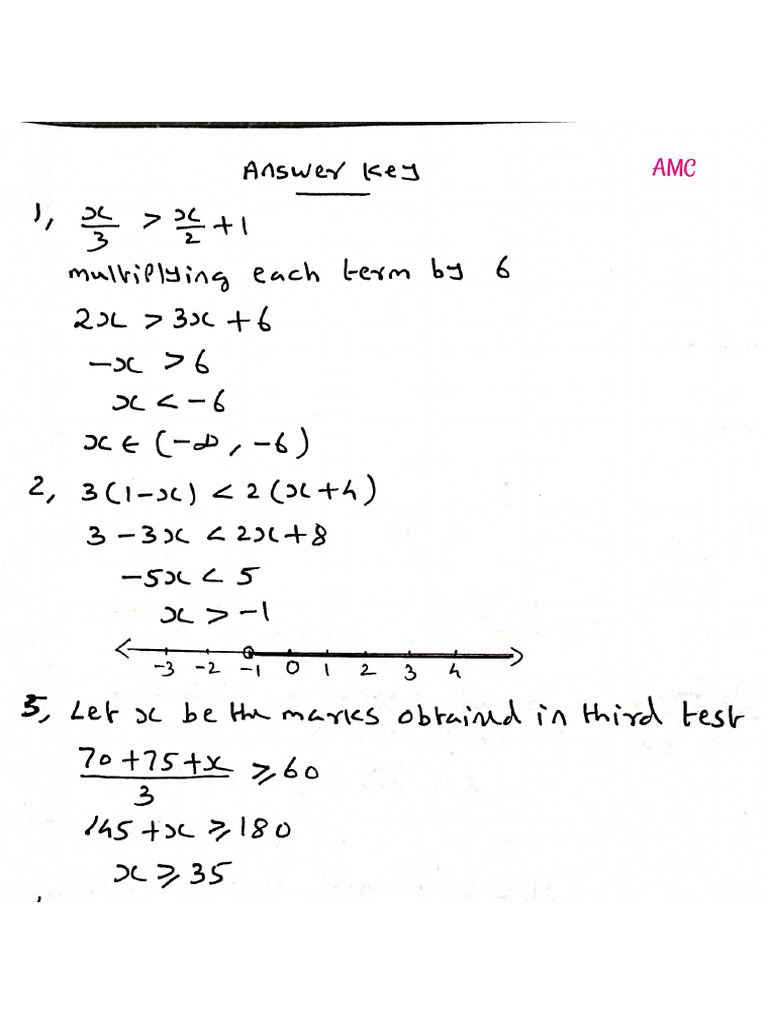 Answer Key
AMC
1, x/3 > x/2 + 1
multiplying each term by 6
2x > 3x + 6
-x > 6
x < -6
x ∈ (-∞, -6)
2, 3(1-x) < 2(x+4)
3 - 3x < 2x + 8
-5x < 5
x > -1
-3 -2 -1 0 1 2 3 4
3, Let x be the marks obtained in third test
(70+75+x)/3 ≥ 60
145 + x ≥ 180
x ≥ 35